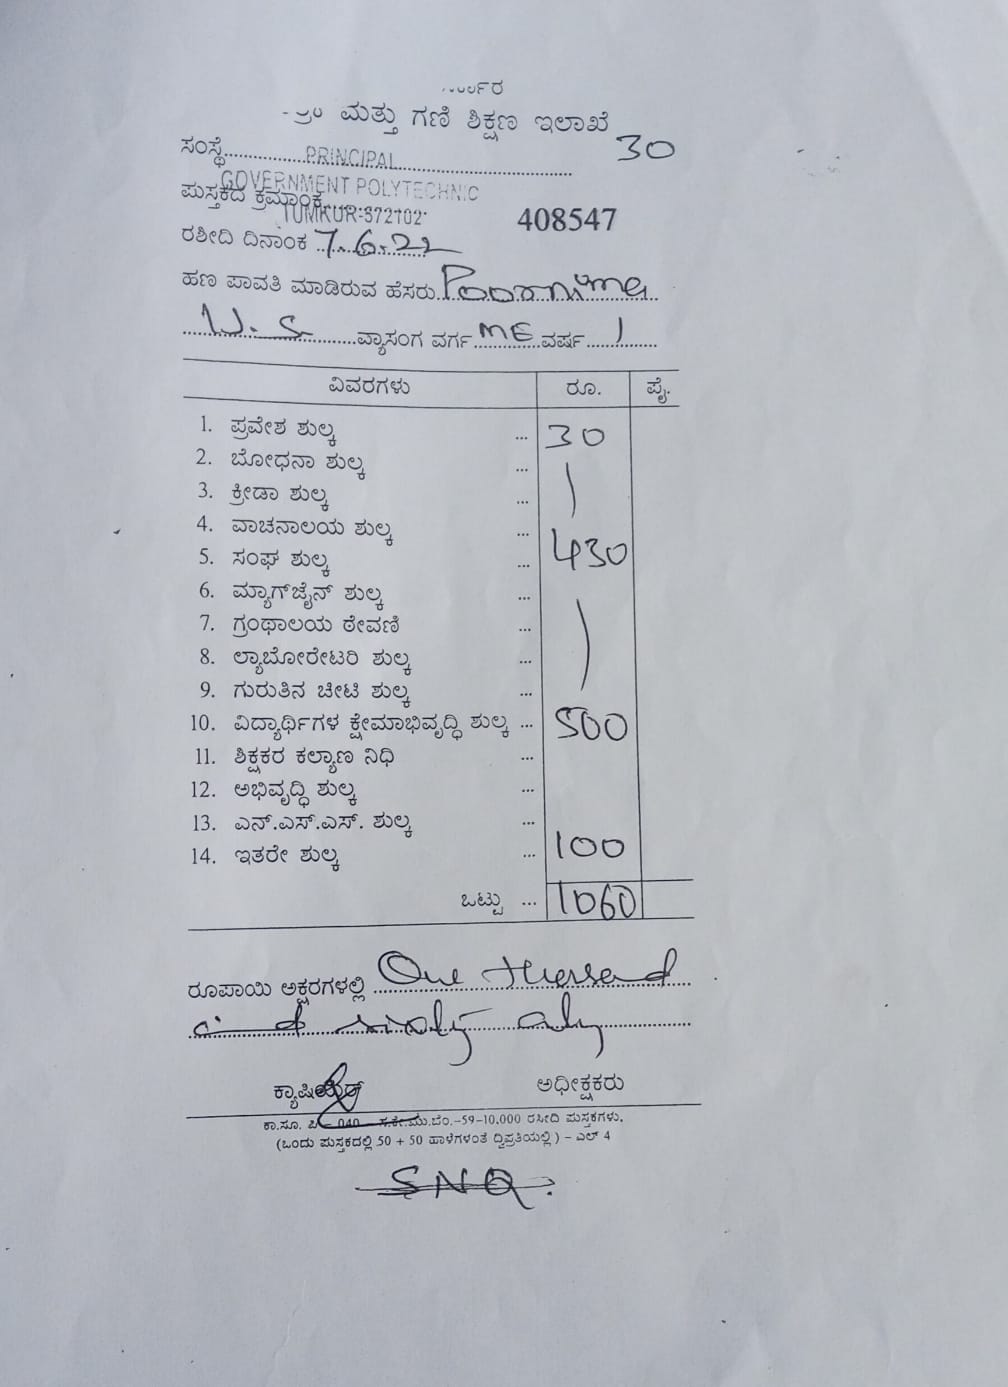 ಮತ್ತು ಗಣಿ ಶಿಕ್ಷಣ ಇಲಾಖೆ
30
ಸಂಸ್ಥೆ.................PRINCIPAL
GOVERNMENT POLYTECHNIC
ಪುಸ್ತಕದ ಕ್ರಮಾಂಕ
TUMKUR-572102
408547
ರಶೀದಿ ದಿನಾಂಕ 7.6.22
ಹಣ ಪಾವತಿ ಮಾಡಿರುವ ಹೆಸರು Poornima
N.S ವ್ಯಾಸಂಗ ವರ್ಗ ME ವರ್ಷ 1
ವಿವರಗಳು ರೂ. ಪೈ.
1. ಪ್ರವೇಶ ಶುಲ್ಕ ... 30
2. ಬೋಧನಾ ಶುಲ್ಕ ...
3. ಕ್ರೀಡಾ ಶುಲ್ಕ ...
4. ವಾಚನಾಲಯ ಶುಲ್ಕ ...
5. ಸಂಘ ಶುಲ್ಕ ... 430
6. ಮ್ಯಾಗ್‌ಜೈನ್ ಶುಲ್ಕ ...
7. ಗ್ರಂಥಾಲಯ ಠೇವಣಿ ...
8. ಲ್ಯಾಬೋರೇಟರಿ ಶುಲ್ಕ ...
9. ಗುರುತಿನ ಚೀಟಿ ಶುಲ್ಕ ...
10. ವಿದ್ಯಾರ್ಥಿಗಳ ಕ್ಷೇಮಾಭಿವೃದ್ಧಿ ಶುಲ್ಕ ... 500
11. ಶಿಕ್ಷಕರ ಕಲ್ಯಾಣ ನಿಧಿ ...
12. ಅಭಿವೃದ್ಧಿ ಶುಲ್ಕ ...
13. ಎನ್.ಎಸ್.ಎಸ್. ಶುಲ್ಕ ...
14. ಇತರೇ ಶುಲ್ಕ ... 100
ಒಟ್ಟು ... 1060
ರೂಪಾಯಿ ಅಕ್ಷರಗಳಲ್ಲಿ One thousand
and sixty only
ಕ್ಯಾಷಿಯರ್ ಅಧೀಕ್ಷಕರು
ಕಾ.ಸೂ. 040 ಸ.ಕೇ.ಮು.ಬೆಂ.-59-10,000 ರಸೀದಿ ಪುಸ್ತಕಗಳು.
(ಒಂದು ಪುಸ್ತಕದಲ್ಲಿ 50 + 50 ಹಾಳೆಗಳಂತೆ ದ್ವಿಪ್ರತಿಯಲ್ಲಿ) – ಎಲ್ 4
SNQ.